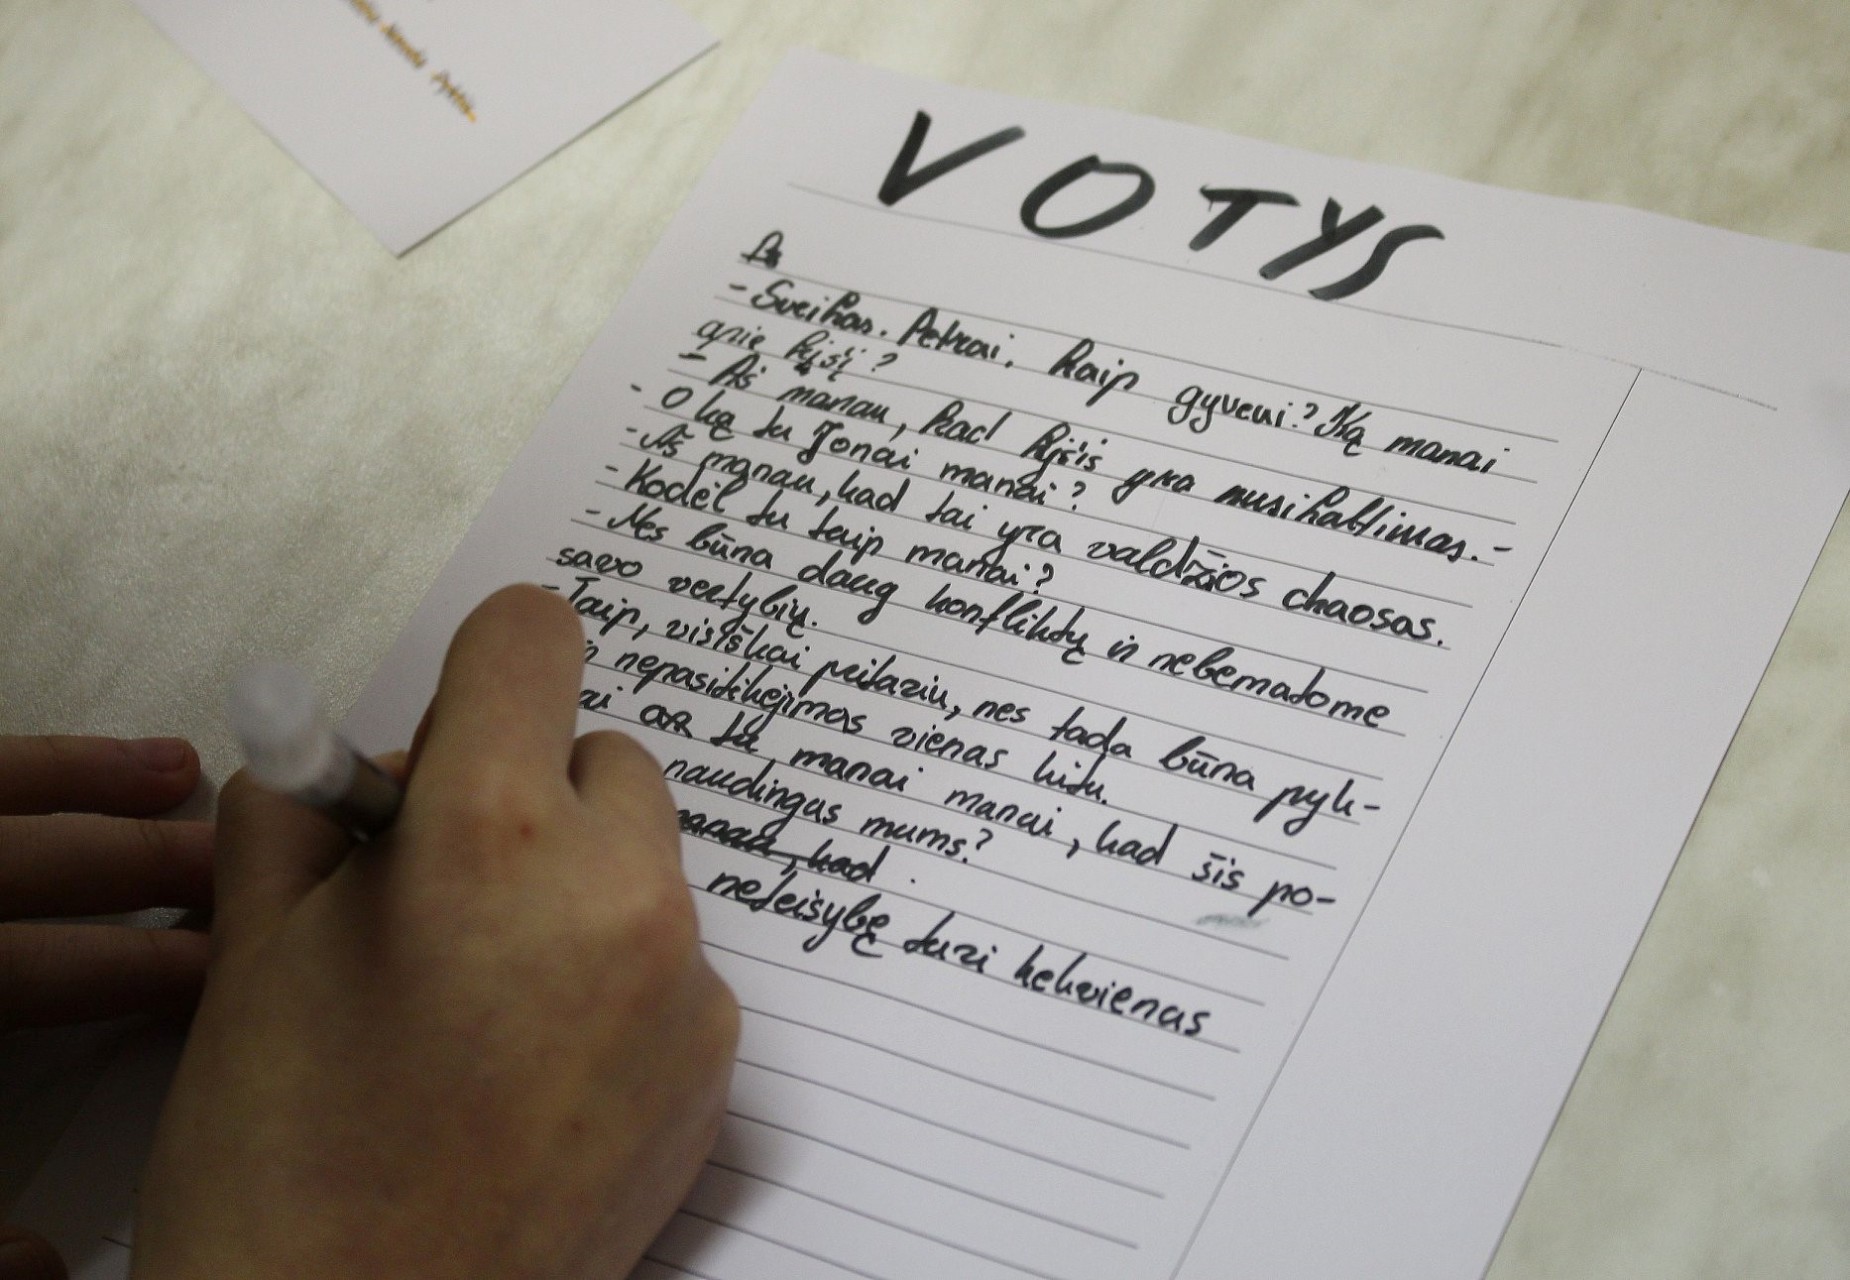 VOTYS
- Sveikas. Petrai. Kaip gyveni? Ką manai
apie Ryšį?
- Aš manau, kad Ryšis yra susikaltimas. -
- O ką tu Jonai manai?
- Aš manau, kad tai yra valdžios chaosas.
- Kodėl tu taip manai?
- Nes būna daug konfliktų ir nebematome
savo vertybių.
- Taip, visiškai pritariu, nes tada būna pyk-
nepasitikėjimas vienas kitu.
ar tu manai manai, kad šis po-
naudingas mums?
kad
neteisybę turi kekvienas